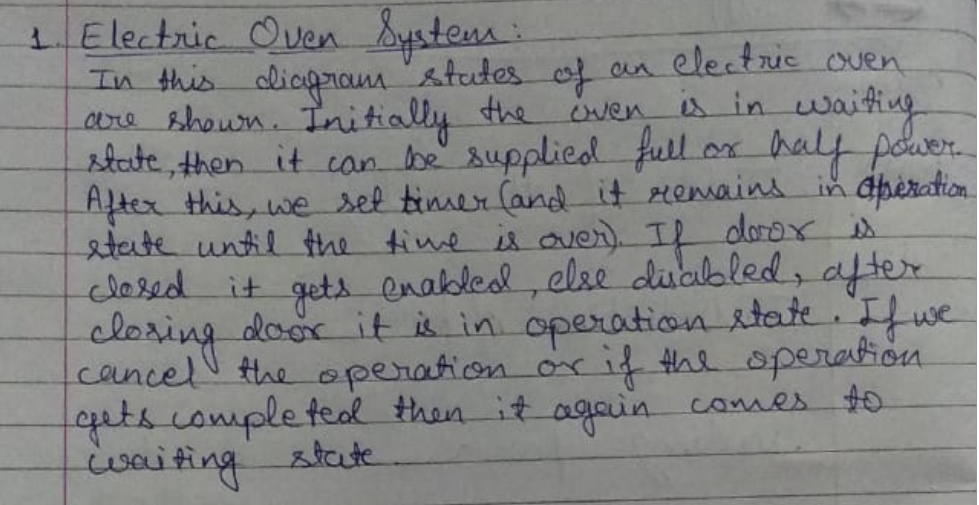 1. Electric Oven System:
In this diagram states of an electric oven
are shown. Initially the oven is in waiting
state, then it can be supplied full or half power.
After this, we set timer (and it remains in operation
state until the time is over). If door is
closed it gets enabled, else disabled, after
closing door it is in operation state. If we
cancel the operation or if the operation
gets completed then it again comes to
waiting state